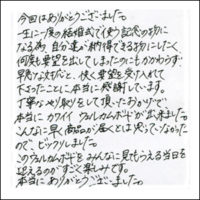 今回はありがとうございました。
一生に一度の結婚式で使う記念の物に
なる為、自分達が納得できる物にしたく
何度も要望を出してしまったのにもかかわらず
早急な対応と、快く要望を受け入れて
下さったことに本当に感謝しています。
丁寧なやり取りをして頂いたおかげで
本当にカワイイウェルカムボードが出来ました。
こんなに早く商品が届くとは思っていなかった
ので、ビックリしました。
このウェルカムボードをみんなに見てもらえる当日を
迎えるのがすごく楽しみです。
本当にありがとうございました。